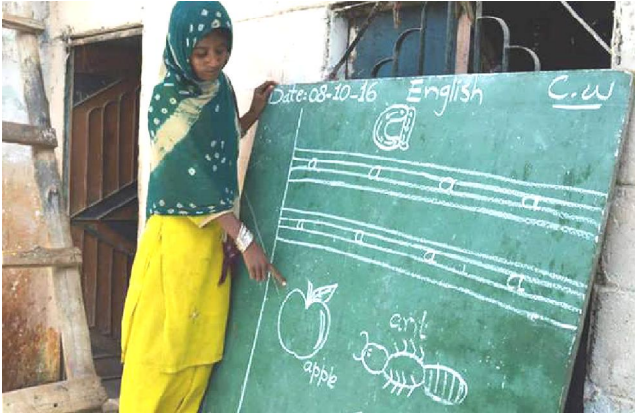 Date: 08-10-16 English C.W
a
a a a a
a a a a
ant
apple